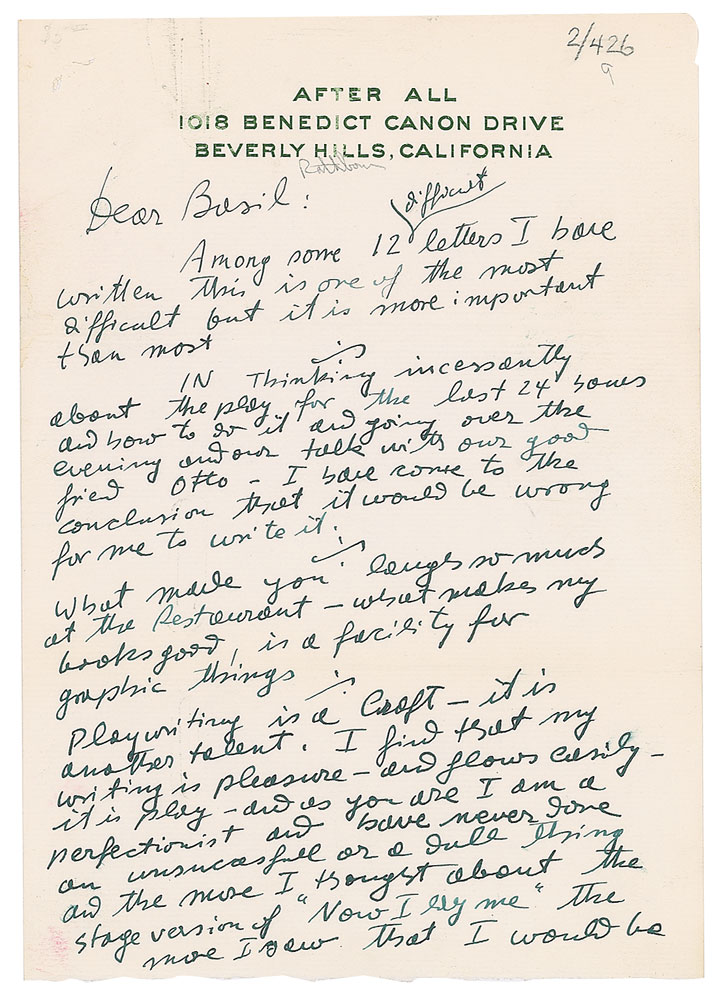 2/426
9
AFTER ALL
1018 BENEDICT CANON DRIVE
BEVERLY HILLS, CALIFORNIA
Rathbone
Dear Basil:
difficult
Among some 12 letters I have
written this is one of the most
difficult but it is more important
than most
IN Thinking incessantly
about the play for the last 24 hours
and how to do it and going over the
evening and our talk with our good
fried Otto - I have come to the
conclusion that it would be wrong
for me to write it.
What made you laugh so much
at the Restaurant - what makes my
books good, is a facility for
graphic things
Playwriting is a Craft - it is
another talent. I find that my
writing is pleasure - and flows easily -
it is play - and as you are I am a
perfectionist and have never done
an unsuccessfull or a dull thing
and the more I thought about the
stage version of "Now I lay me" the
more I saw that I would be